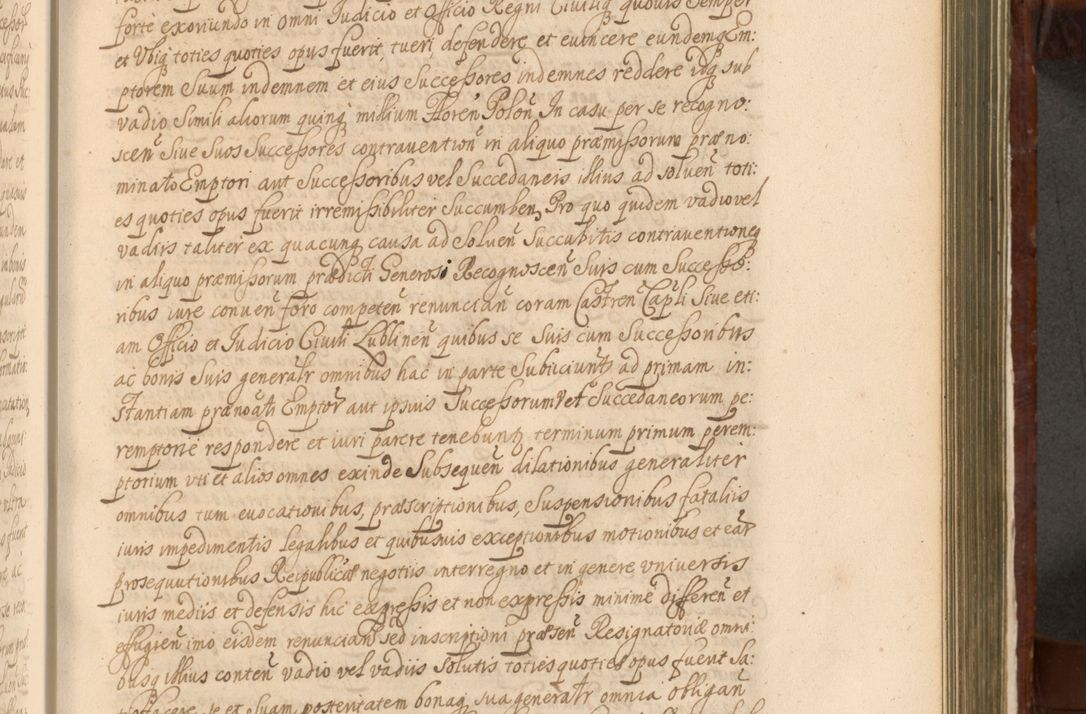 forte exoriundo in omni Iudicio et Officio Regni Civiliq quovis Semper
et Ubiq toties quoties opus fuerit, tueri defendere et evincere eundemq Em:
ptorem Suum indemnem et eius Successores indemnes reddere idq sub
vadio Simili aliorum quinq millium Floren̄ Polon̄ In casu per se recogno:
scen̄ Sive Suos Successores contravention̄ in aliquo præmissorum præno:
minato Emptori aut Successoribus vel Succedaneis illius ad solven̄ toti:
es quoties opus fuerit irremissibiliter Succumben, Pro quo quidem vadio vel
vadiis taliter ex quacunq causa ad Solven̄ Succubitis contraventioneq
in aliquo præmissorum prædicti Generosi Recognoscen̄ Suis cum Successo:
ribus iure conven̄ foro competen̄ renuncian̄ coram Castren̄ Capūli Sive eti:
am Officio et Iudicio Civili Lublinen̄ quibus se Suis cum Successoribus
ac bonis Suis generalr omnibus hac in parte Subiiciunt ad primam in:
stantiam prænoāti Emptor aut ipsius Successorum vel Succedaneorum pe:
remptorie respondere et iuri parere tenebuntq terminum primum perem:
ptorium uti et alios omnes exinde Subsequen̄ dilationibus generaliter
omnibus tum evocationibus, præscriptionibus, Suspensionibus fataliis
iuris impedimentis legalibus et quibusvis exceptionibus motionibus et ear
prosequutionibus Reipublicæ negotiis interregno et in genere universis
iuris mediis et defensis hic expressis et non expressis minime differen̄ et
effugien̄ imo eisdem renuncian̄ sed inscriptioni præsen̄ Resignatoriæ omni:
busq illius conten̄ vadio vel vadiis solutis toties quoties opus fuerit Sa:
tisfacere, se et suam posteritatem bonaq sua generalr omnia obligan̄